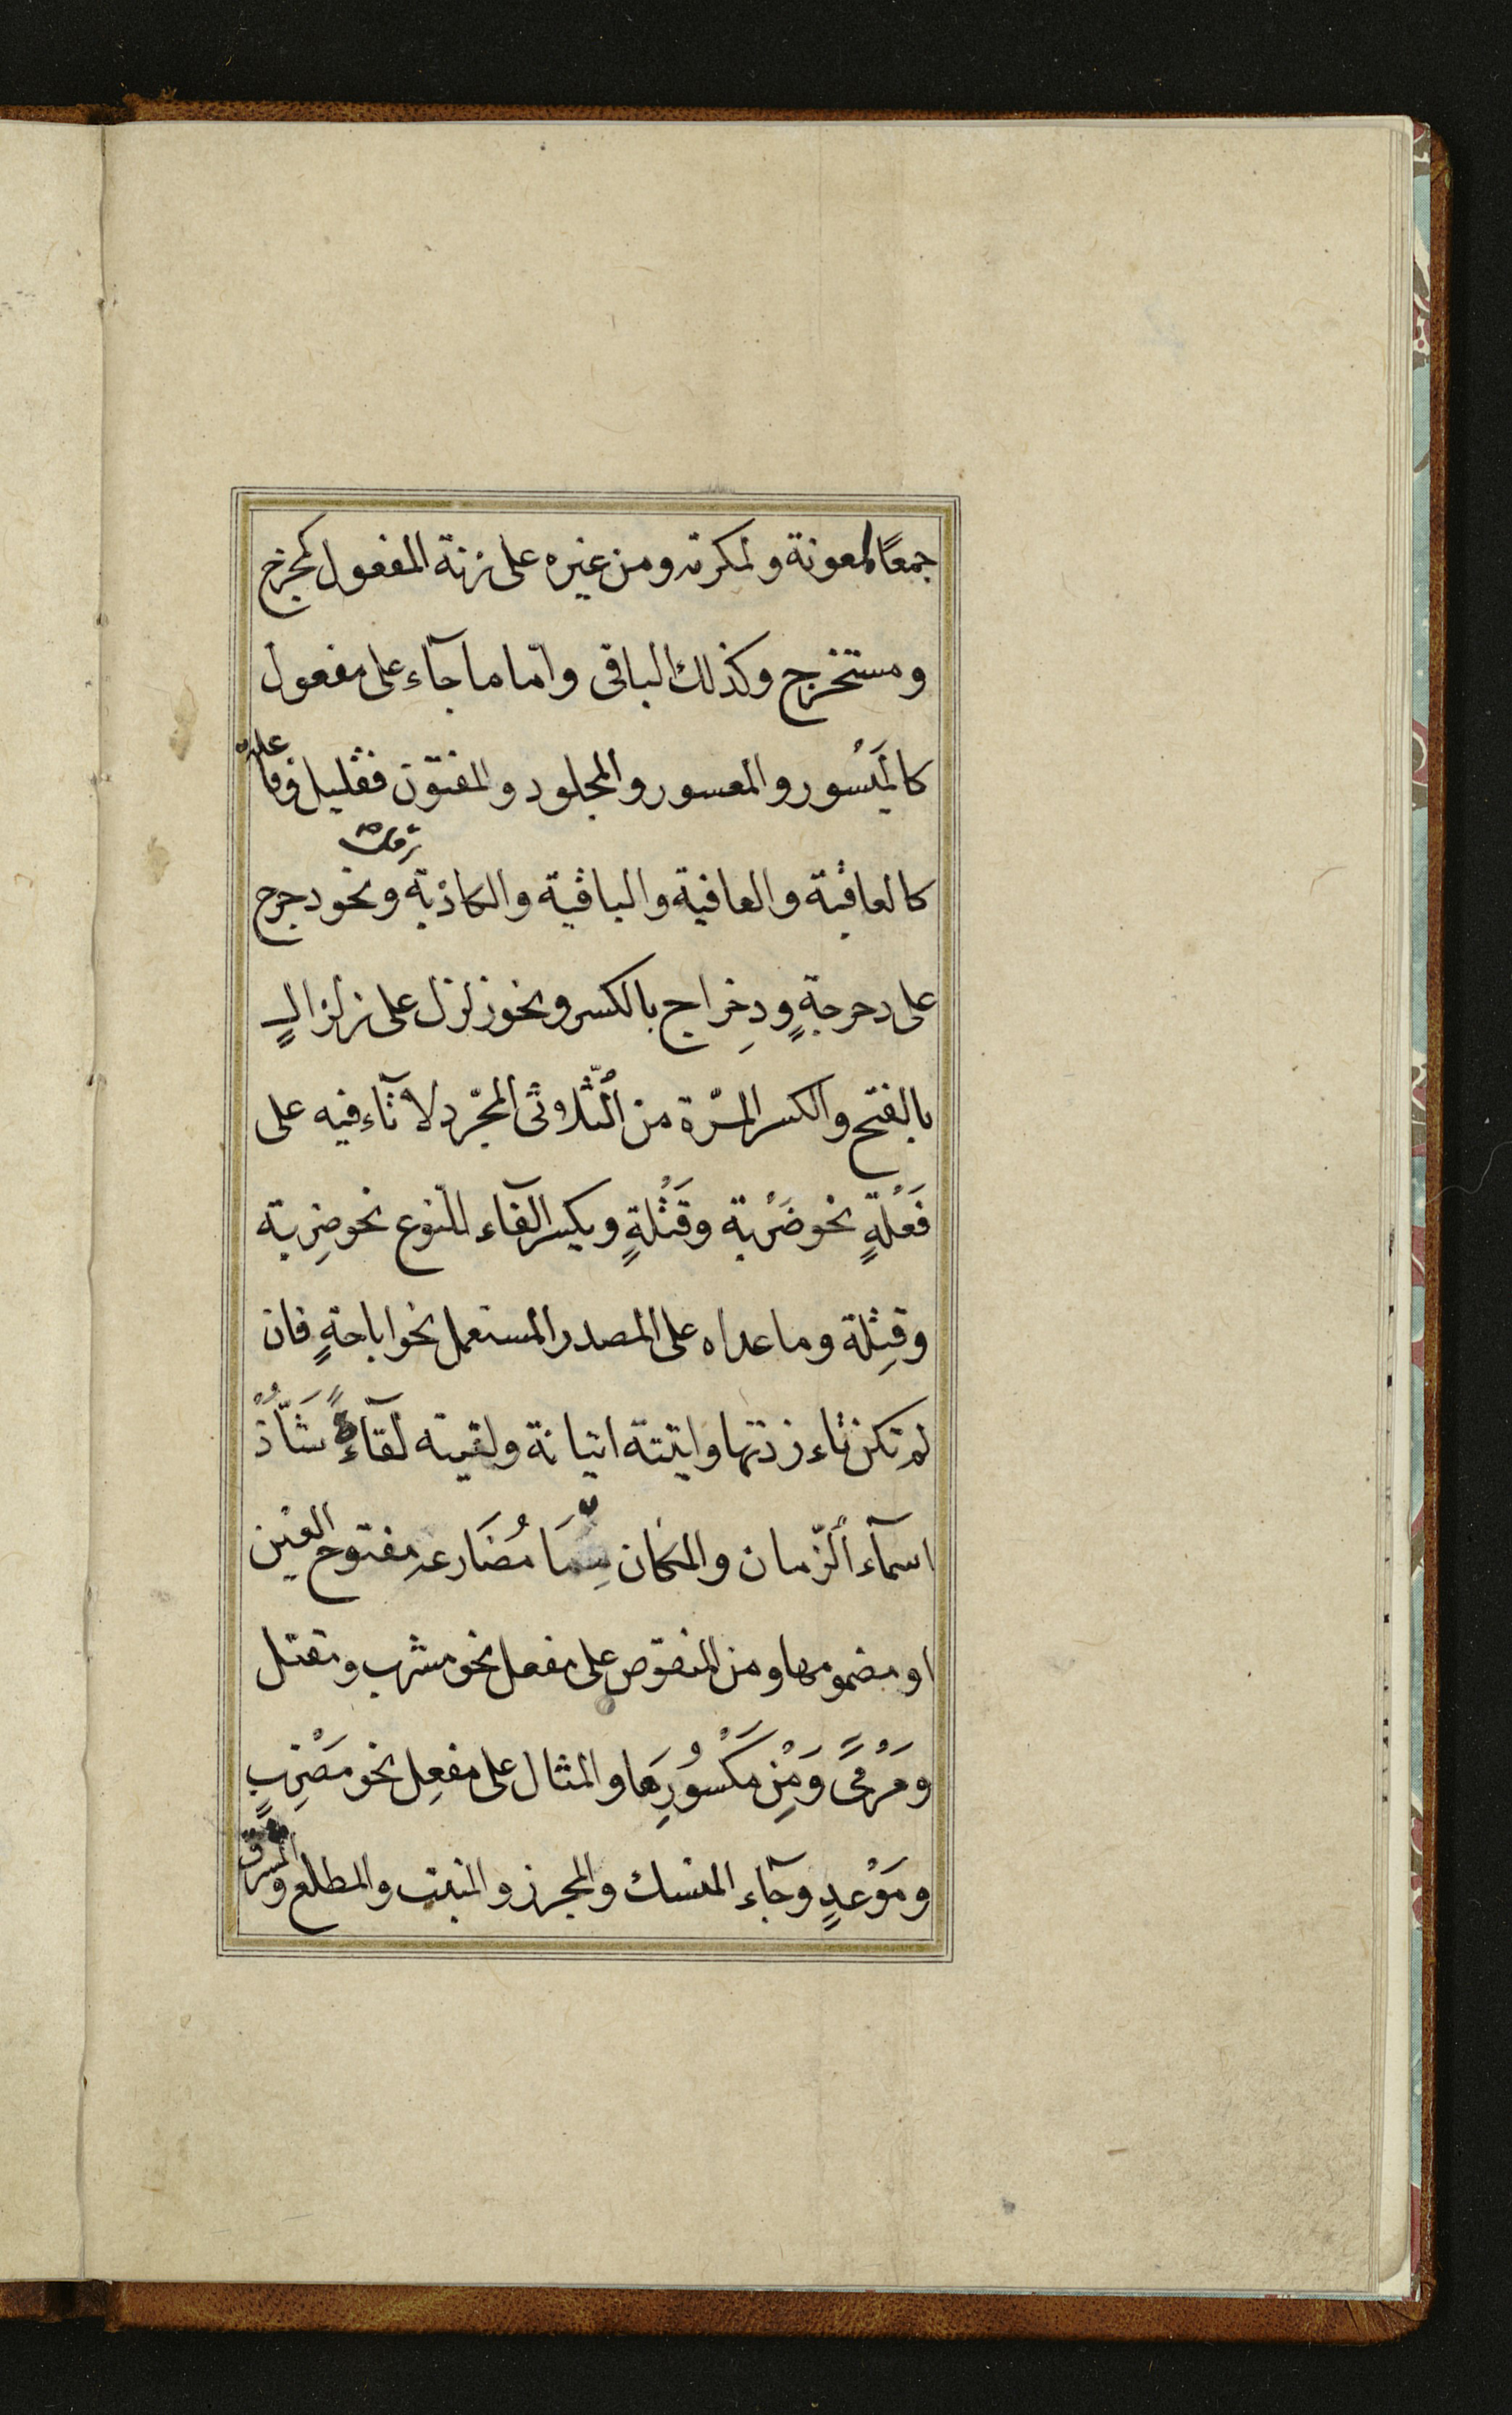 جمعًا لمعونة ولمكرمة ومن غيره على زنة المفعول كمخرج
ومستخرج وكذلك الباقى وامّا ما جآء على مفعول
كالمَيْسُور والمعسور والمجلود والمفتون فقليل وفاعلة
كالعاقبة والعافية والباقية والكاذبة ونحو دحرج
على دحرجةٍ ودِحراج بالكسر ونحو زلزل على زلزالٍ
بالفتح والكسر المرّة من الثّلاثى المجّرد لا تآء فيه على
فَعْلَةٍ نحو ضَرْبة وقَتْلَةٍ وبكسر الفآء للنّوع نحو ضِربة
وقِتِلة وما عداه على المصدر المستعمل نحو اباحةٍ فان
لم تكن تاء زدتها واتيته اتيانة ولقيته لقآءةً شَاذٌّ
اسمآء الزّمان والمكان مِمَّا مُضَارعه مفتوح العين
او مضمومها ومن المنقوص على مفعل نحو مشرب ومقتل
ومَرْمًى وَمِنْ مَكْسُورِهَا والمثال على مفعِل نحو مَضْرِبٍ
ومَوْعدٍ وجآء المنسك والمجزر والمنبت والمطلع والمشرق